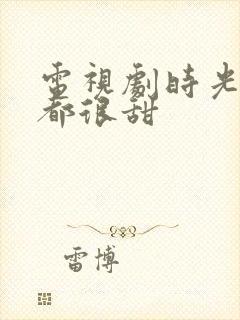 電視劇時光
都很甜
雷博